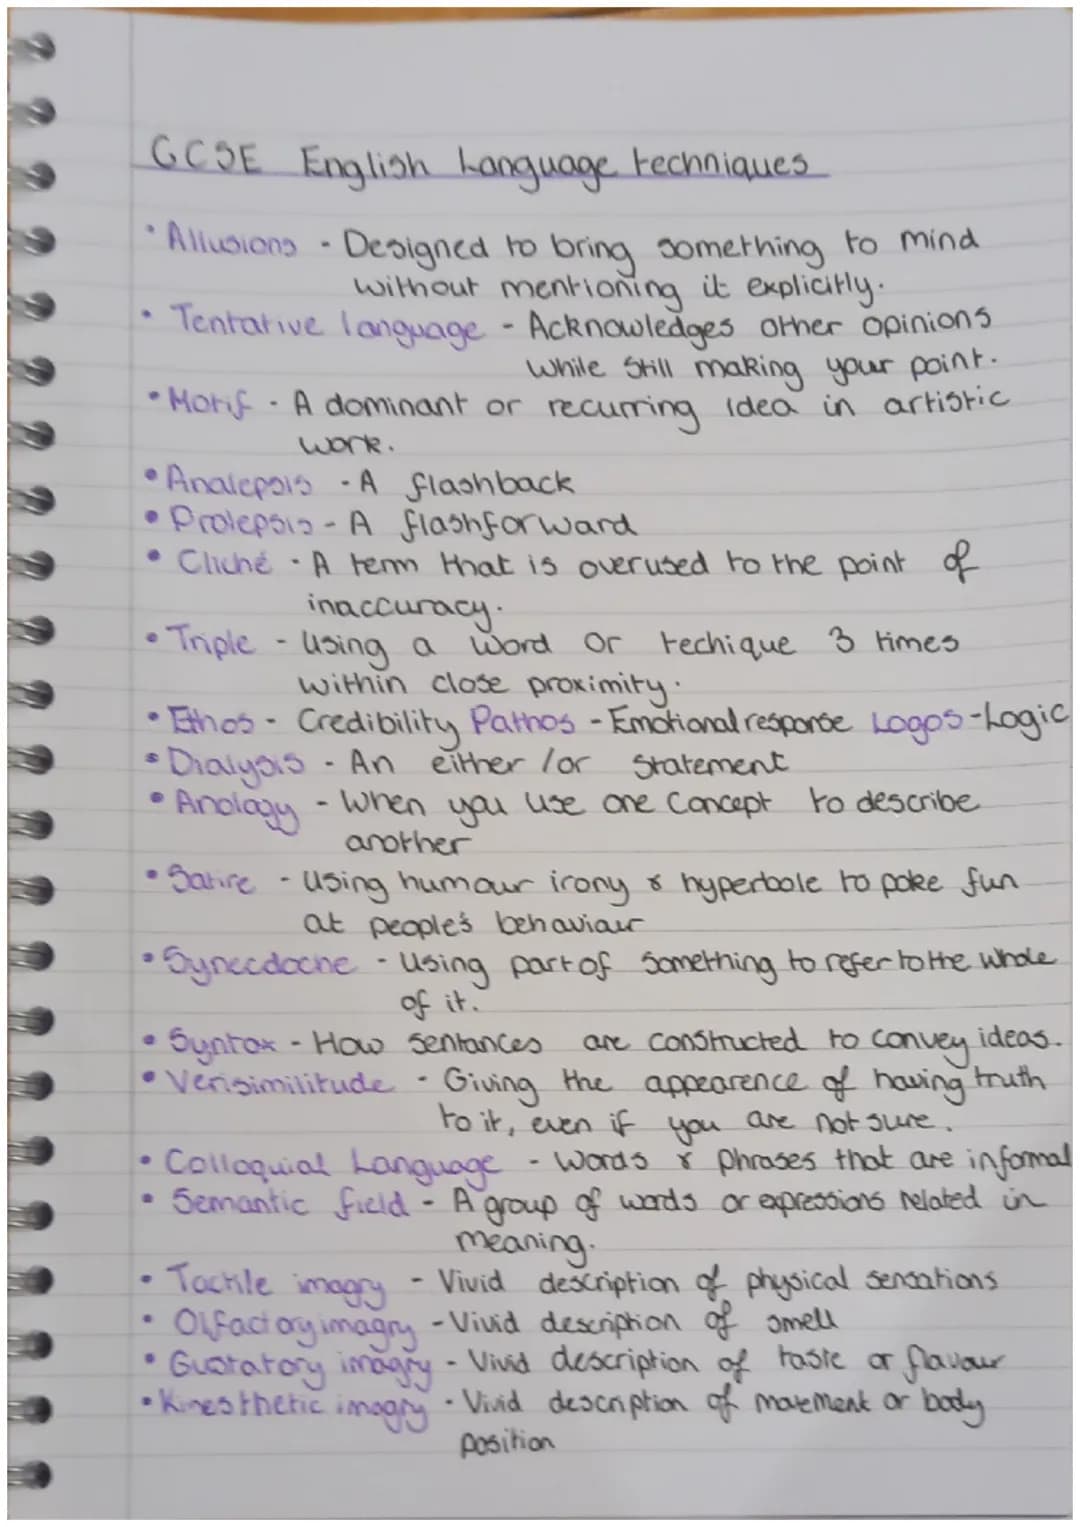 GCSE English Language techniques
• Allusions - Designed to bring something to mind
without mentioning it explicitly.
• Tentative language - Acknowledges other opinions
while still making your point.
• Motif - A dominant or recurring idea in artistic
work.
• Analepsis - A flashback
• Prolepsis - A flashforward
• Cliché - A term that is overused to the point of
inaccuracy.
• Triple - Using a word or techique 3 times
within close proximity.
• Ethos - Credibility Pathos - Emotional response Logos - Logic
• Dialysis - An either / or statement
• Anology - When you use one concept to describe
another
• Satire - Using humour irony & hyperbole to poke fun
at people's behaviour
• Synecdoche - Using part of something to refer to the whole
of it.
• Syntax - How sentances are constructed to convey ideas.
• Verisimilitude - Giving the appearence of having truth
to it, even if you are not sure.
• Colloquial Language - Words & phrases that are informal
• Semantic field - A group of words or expressions related in
meaning.
• Tactile imagry - Vivid description of physical sensations
• Olfactory imagry - Vivid description of smell
• Gustatory imagry - Vivid description of taste or flavour
• Kinesthetic imagry - Vivid description of movement or body
position